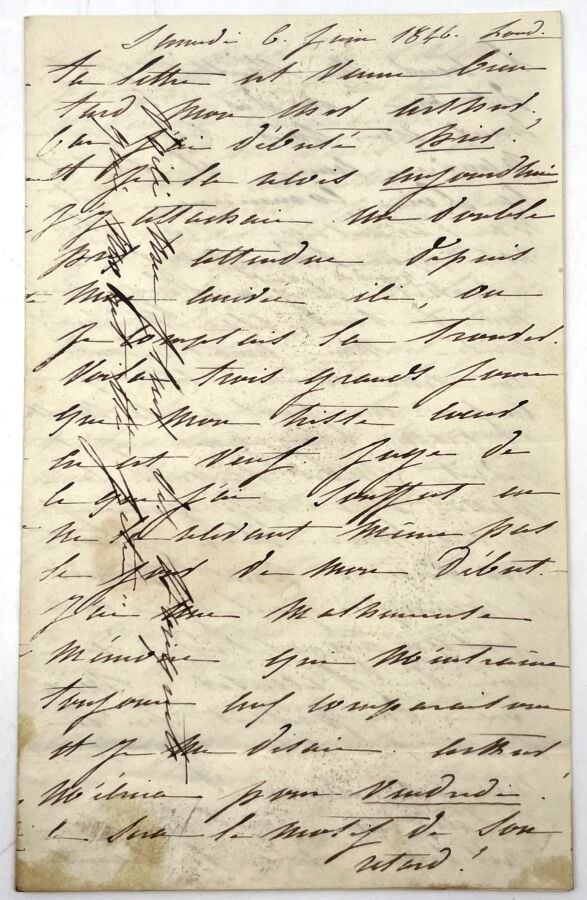 Samedi 6. Juin 1846. Lond.
Ta lettre est venue bien
tard mon cher Arthur,
car j'ai débuté hier.
et je la reçois aujourd'hui
j'y attachais un double
prix attendue depuis
mon arrivée ici, où
je comptais la trouver.
Voilà trois grands jours
que mon triste cœur
en est veuf. Juge de
ce que j'ai souffert en
ne la recevant même pas
le jour de mon début.
J'ai une malheureuse
mémoire qui m'entraîne
toujours aux comparaisons
et je me disais. Arthur
m'écrira pour Vendredi.
ce sera le motif de son
retard!